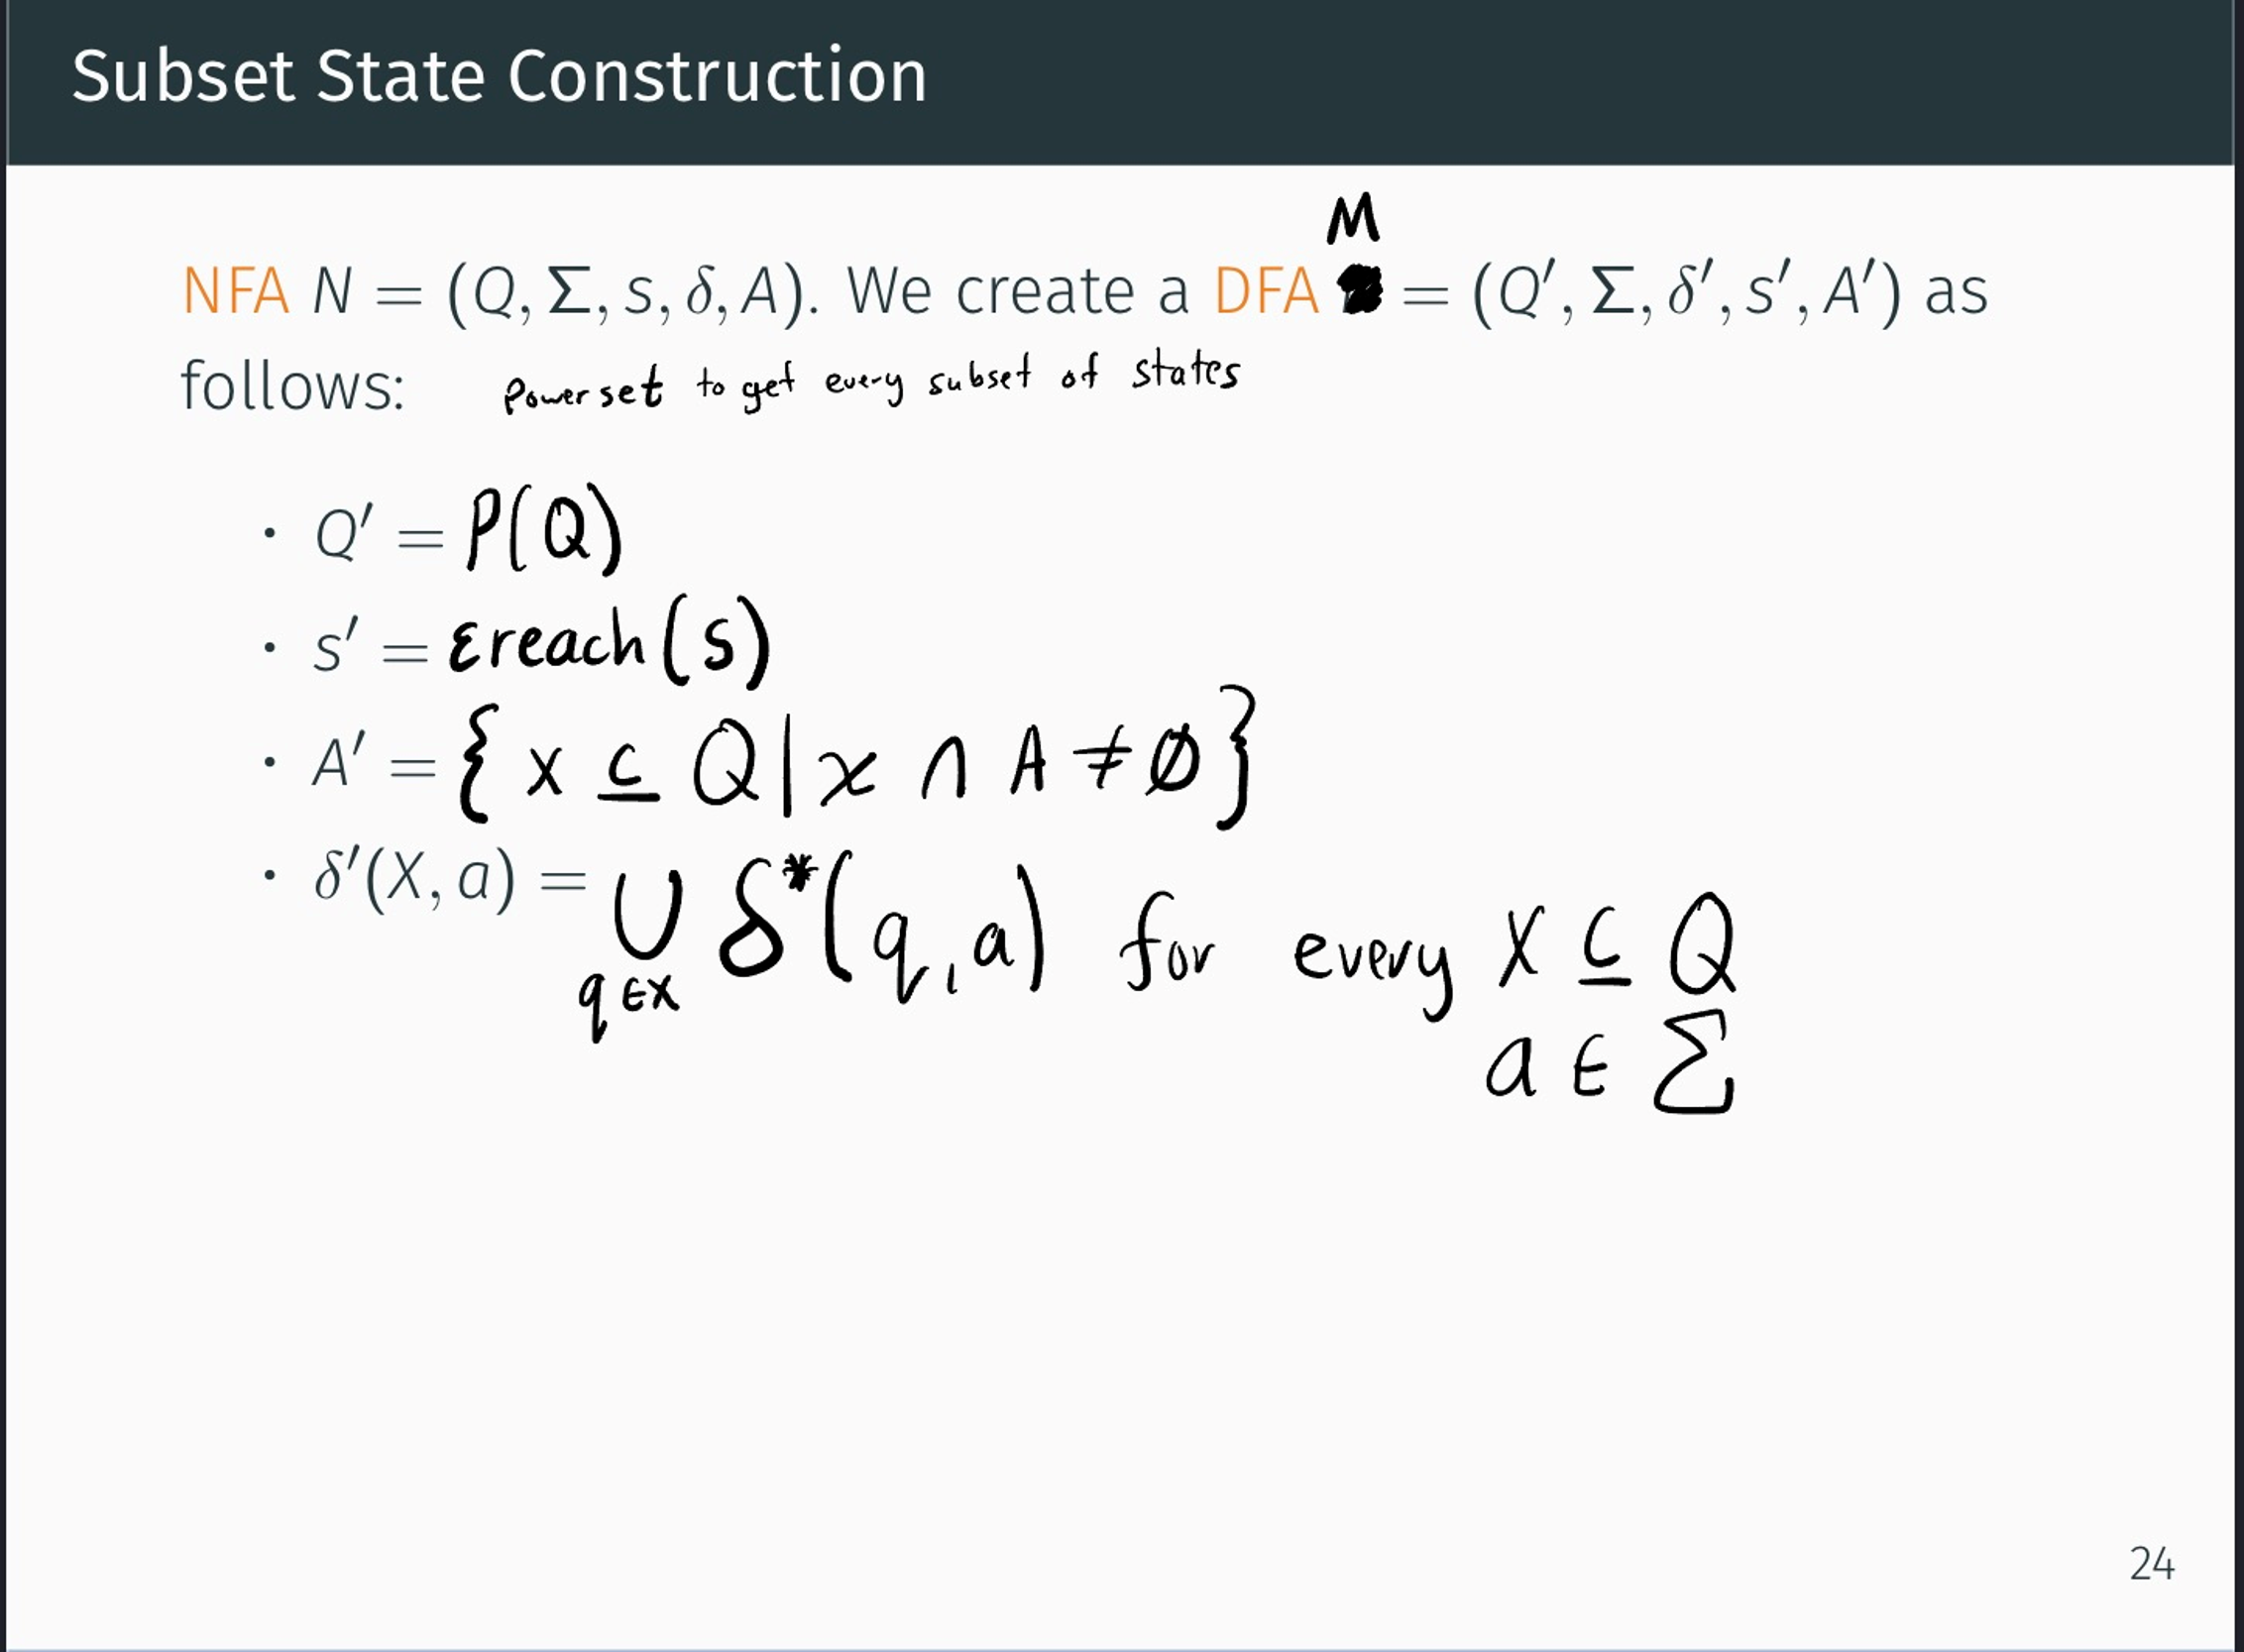 Subset State Construction
M
NFA N = (Q, Σ, s, δ, A). We create a DFA = (Q′, Σ, δ′, s′, A′) as
follows: Powerset to get every subset of states
• Q′ = P(Q)
• s′ = εreach(s)
• A′ = { X ⊆ Q | X ∩ A ≠ ∅ }
• δ′(X, a) = ∪ δ*(q, a) for every X ⊆ Q
q∈X
a ∈ Σ
24